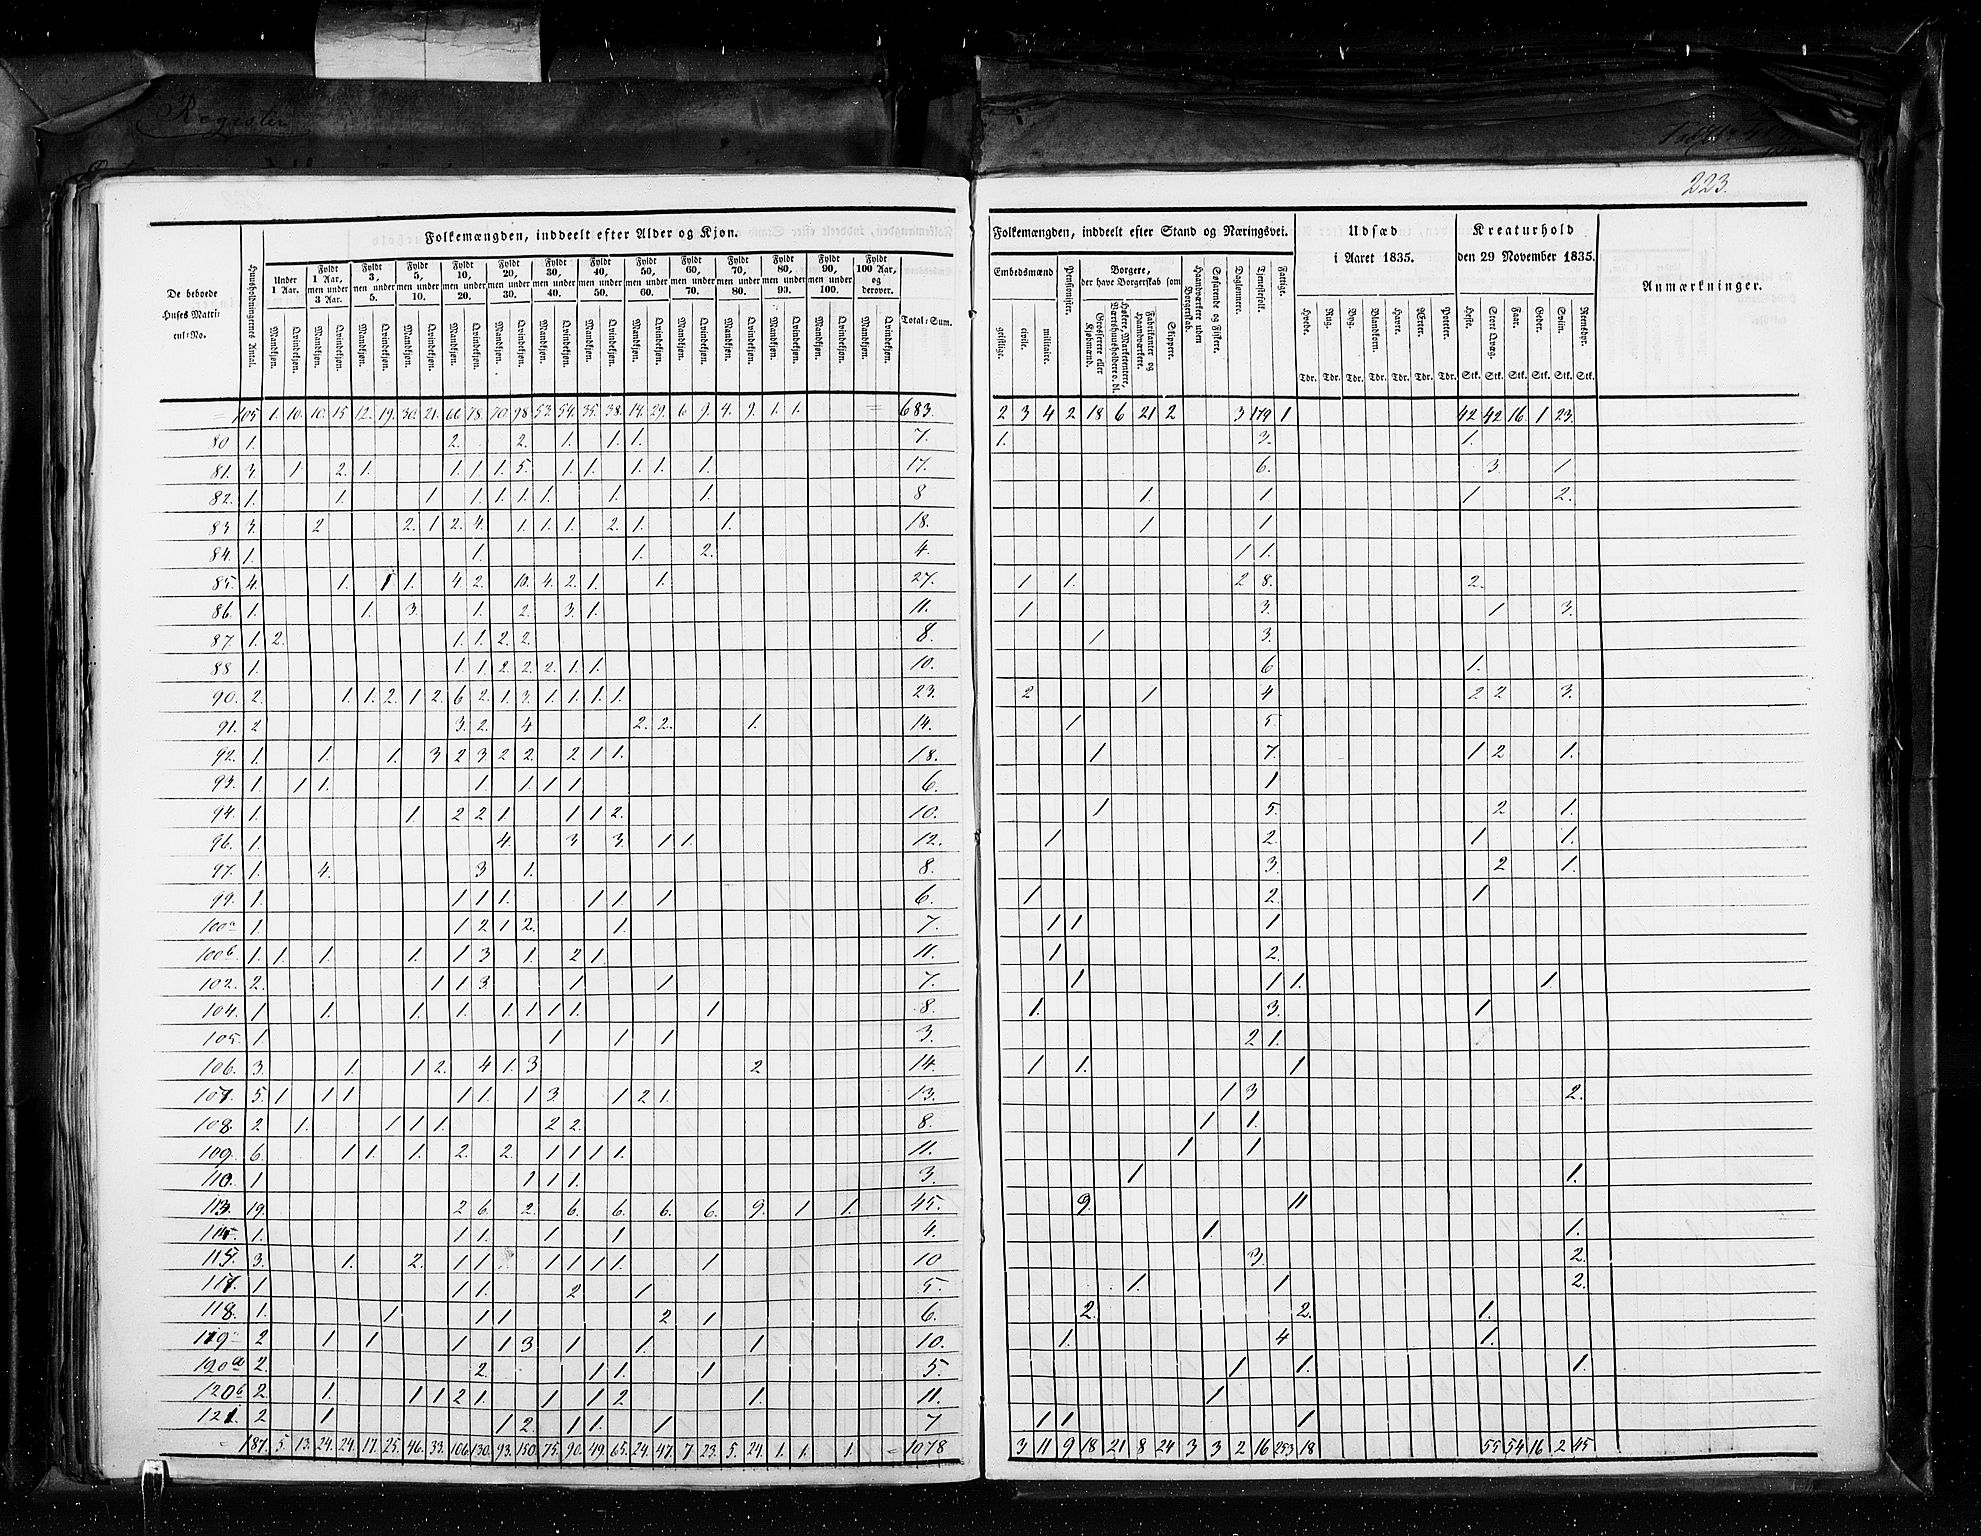 Register
223.
Folkemængden, inddeelt efter Alder og Kjøn.
De beboede Huses Matricul-No.
Huusholdningernes Antal.
Under 1 Aar.
Fyldt 1 Aar, men under 3 Aar.
Fyldt 3, men under 5.
Fyldt 5, men under 10.
Fyldt 10, men under 20.
Fyldt 20, men under 30.
Fyldt 30, men under 40.
Fyldt 40, men under 50.
Fyldt 50, men under 60.
Fyldt 60, men under 70.
Fyldt 70, men under 80.
Fyldt 80, men under 90.
Fyldt 90, men under 100.
Fyldt 100 Aar, og derover.
Total-Sum.
Mandkjøn. Qvindekjøn. Mandkjøn. Qvindekjøn. Mandkjøn. Qvindekjøn. Mandkjøn. Qvindekjøn. Mandkjøn. Qvindekjøn. Mandkjøn. Qvindekjøn. Mandkjøn. Qvindekjøn. Mandkjøn. Qvindekjøn. Mandkjøn. Qvindekjøn. Mandkjøn. Qvindekjøn. Mandkjøn. Qvindekjøn. Mandkjøn. Qvindekjøn. Mandkjøn. Qvindekjøn. Mandkjøn. Qvindekjøn.
105 1. 10. 10. 15 12. 19. 30. 21. 66 78. 70 98. 53. 54. 35. 38. 14. 29. 6 9. 4. 9. 1. 1. 683.
80 1. 2. 2. 1. 1. 1. 7.
81. 3. 1 2. 1. 1. 1. 1. 5. 1. 1. 1. 1. 1. 17.
82. 1. 1. 1. 1. 1. 1. 1. 1. 1. 8
83 3. 2 2. 1 2. 4. 1. 1. 1. 2. 1. 1. 18.
84. 1. 1. 1. 2. 4.
85. 4. 1. 1 1. 4 2. 10. 4. 2. 1. 1. 27.
86. 1. 1. 3. 1. 2. 3. 1. 11.
87. 1. 2. 1. 1. 2. 2. 8.
88 1. 1 1 2 2. 2. 1. 1. 10.
90. 2. 1. 1. 2. 1 2. 6 2. 1. 3. 1. 1. 1. 1. 23.
91. 2 3. 2. 4 2. 2. 1. 14.
92. 1. 1. 1. 3 2 3 2 2. 2 1 1. 18.
93. 1. 1 1. 1 1. 1 1 6.
94. 1. 1 2 2 1. 1 1 2. 10.
96. 1. 4. 3 3. 1 1. 12.
97. 1. 4. 3 1. 8.
99. 1. 1 1 1. 1 1. 1 6.
100a 1. 1 2 1 2. 1. 7.
100b 1. 1. 1. 1. 1 3 1. 2 1. 11.
102. 2. 1 1 3. 1 1. 7.
104. 1 1. 1. 1. 1 1 1 1. 1 8.
105. 1. 1 1 1 3.
106. 3. 1. 1 2. 4 1. 3 2 14.
107. 5. 1 1 1 1 1. 1 3. 1 2 1. 13.
108. 2 1. 1 1 1. 2 2. 8.
109. 6. 1 1. 1. 2. 2. 1 1 1 1. 11.
110. 1 1 1 1. 3.
113. 19. 2 6. 2. 6. 6. 6. 6. 9. 1 1. 45.
1. 1 1. 1 1 4.
115. 3. 1. 2. 1 1 1 1 1 1. 1 10
117. 1 1 1. 2 1 5.
118. 1. 1 1 1 2 1 6.
119 2 1 1 1 1 3 1 1. 1 10.
2. 2. 1 1. 1 5.
120b 2. 1. 1 1 2 1. 1 1 2 1. 11.
121. 2 1 1 2. 1 1. 1 7
187. 5. 13. 24. 24. 17. 25. 46. 33. 106. 130. 93. 150. 75. 90. 49. 65. 24. 47. 7 23. 5. 24. 1. 1. 1. 1078
Folkemængden, inddeelt efter Stand og Næringsvei.
Embedsmænd
geistlige.
civile.
militaire.
Pensionister.
Borgere, der have Borgerskab som
Grosserere eller Kjøbmænd.
Høkere, Marketentere, Værtshuusholdere o. dl.
Fabrikanter og Haandværkere.
Skippere.
Haandværkere uden Borgerskab.
Søfarende og Fiskere.
Daglønnere.
Tjenestefolk.
Fattige.
Udsæd i Aaret 1835.
Hvede. Rug. Byg. Blandkorn. Havre. Ærter. Poteter.
Tdr. Tdr. Tdr. Tdr. Tdr. Tdr. Tdr.
Kreaturhold den 29 November 1835.
Heste. Stort Qvæg. Faar. Geder. Sviin. Rensdyr.
Stk. Stk. Stk. Stk. Stk. Stk.
Anmærkninger.
2 3 4 2 18 6 21 2 3 179 1 42 42 16. 1 23.
1. 3. 1.
6. 3 1
1. 1 1 2.
1 1
1 1.
1 1. 2 8. 2.
1 3. 1 3.
1 3.
6 1.
2 1 4 2 2 3.
1 5.
1 7. 1 2 1.
1
1 5. 2 1.
1 2. 1 1.
3. 2 1.
1 2. 1
1 1 1
1 2.
1 1 1. 1
1. 3. 1
2 1.
1 1. 1
1 3. 2.
1 1.
1 1
1 1.
9. 11
1 1.
3. 2.
1. 1 2.
2. 2. 1.
1. 4 1.
1 1. 1.
1
1 1 1
3 11 9 18 21 8 24 3 3 2 16 253 18 55 54 16 2 45